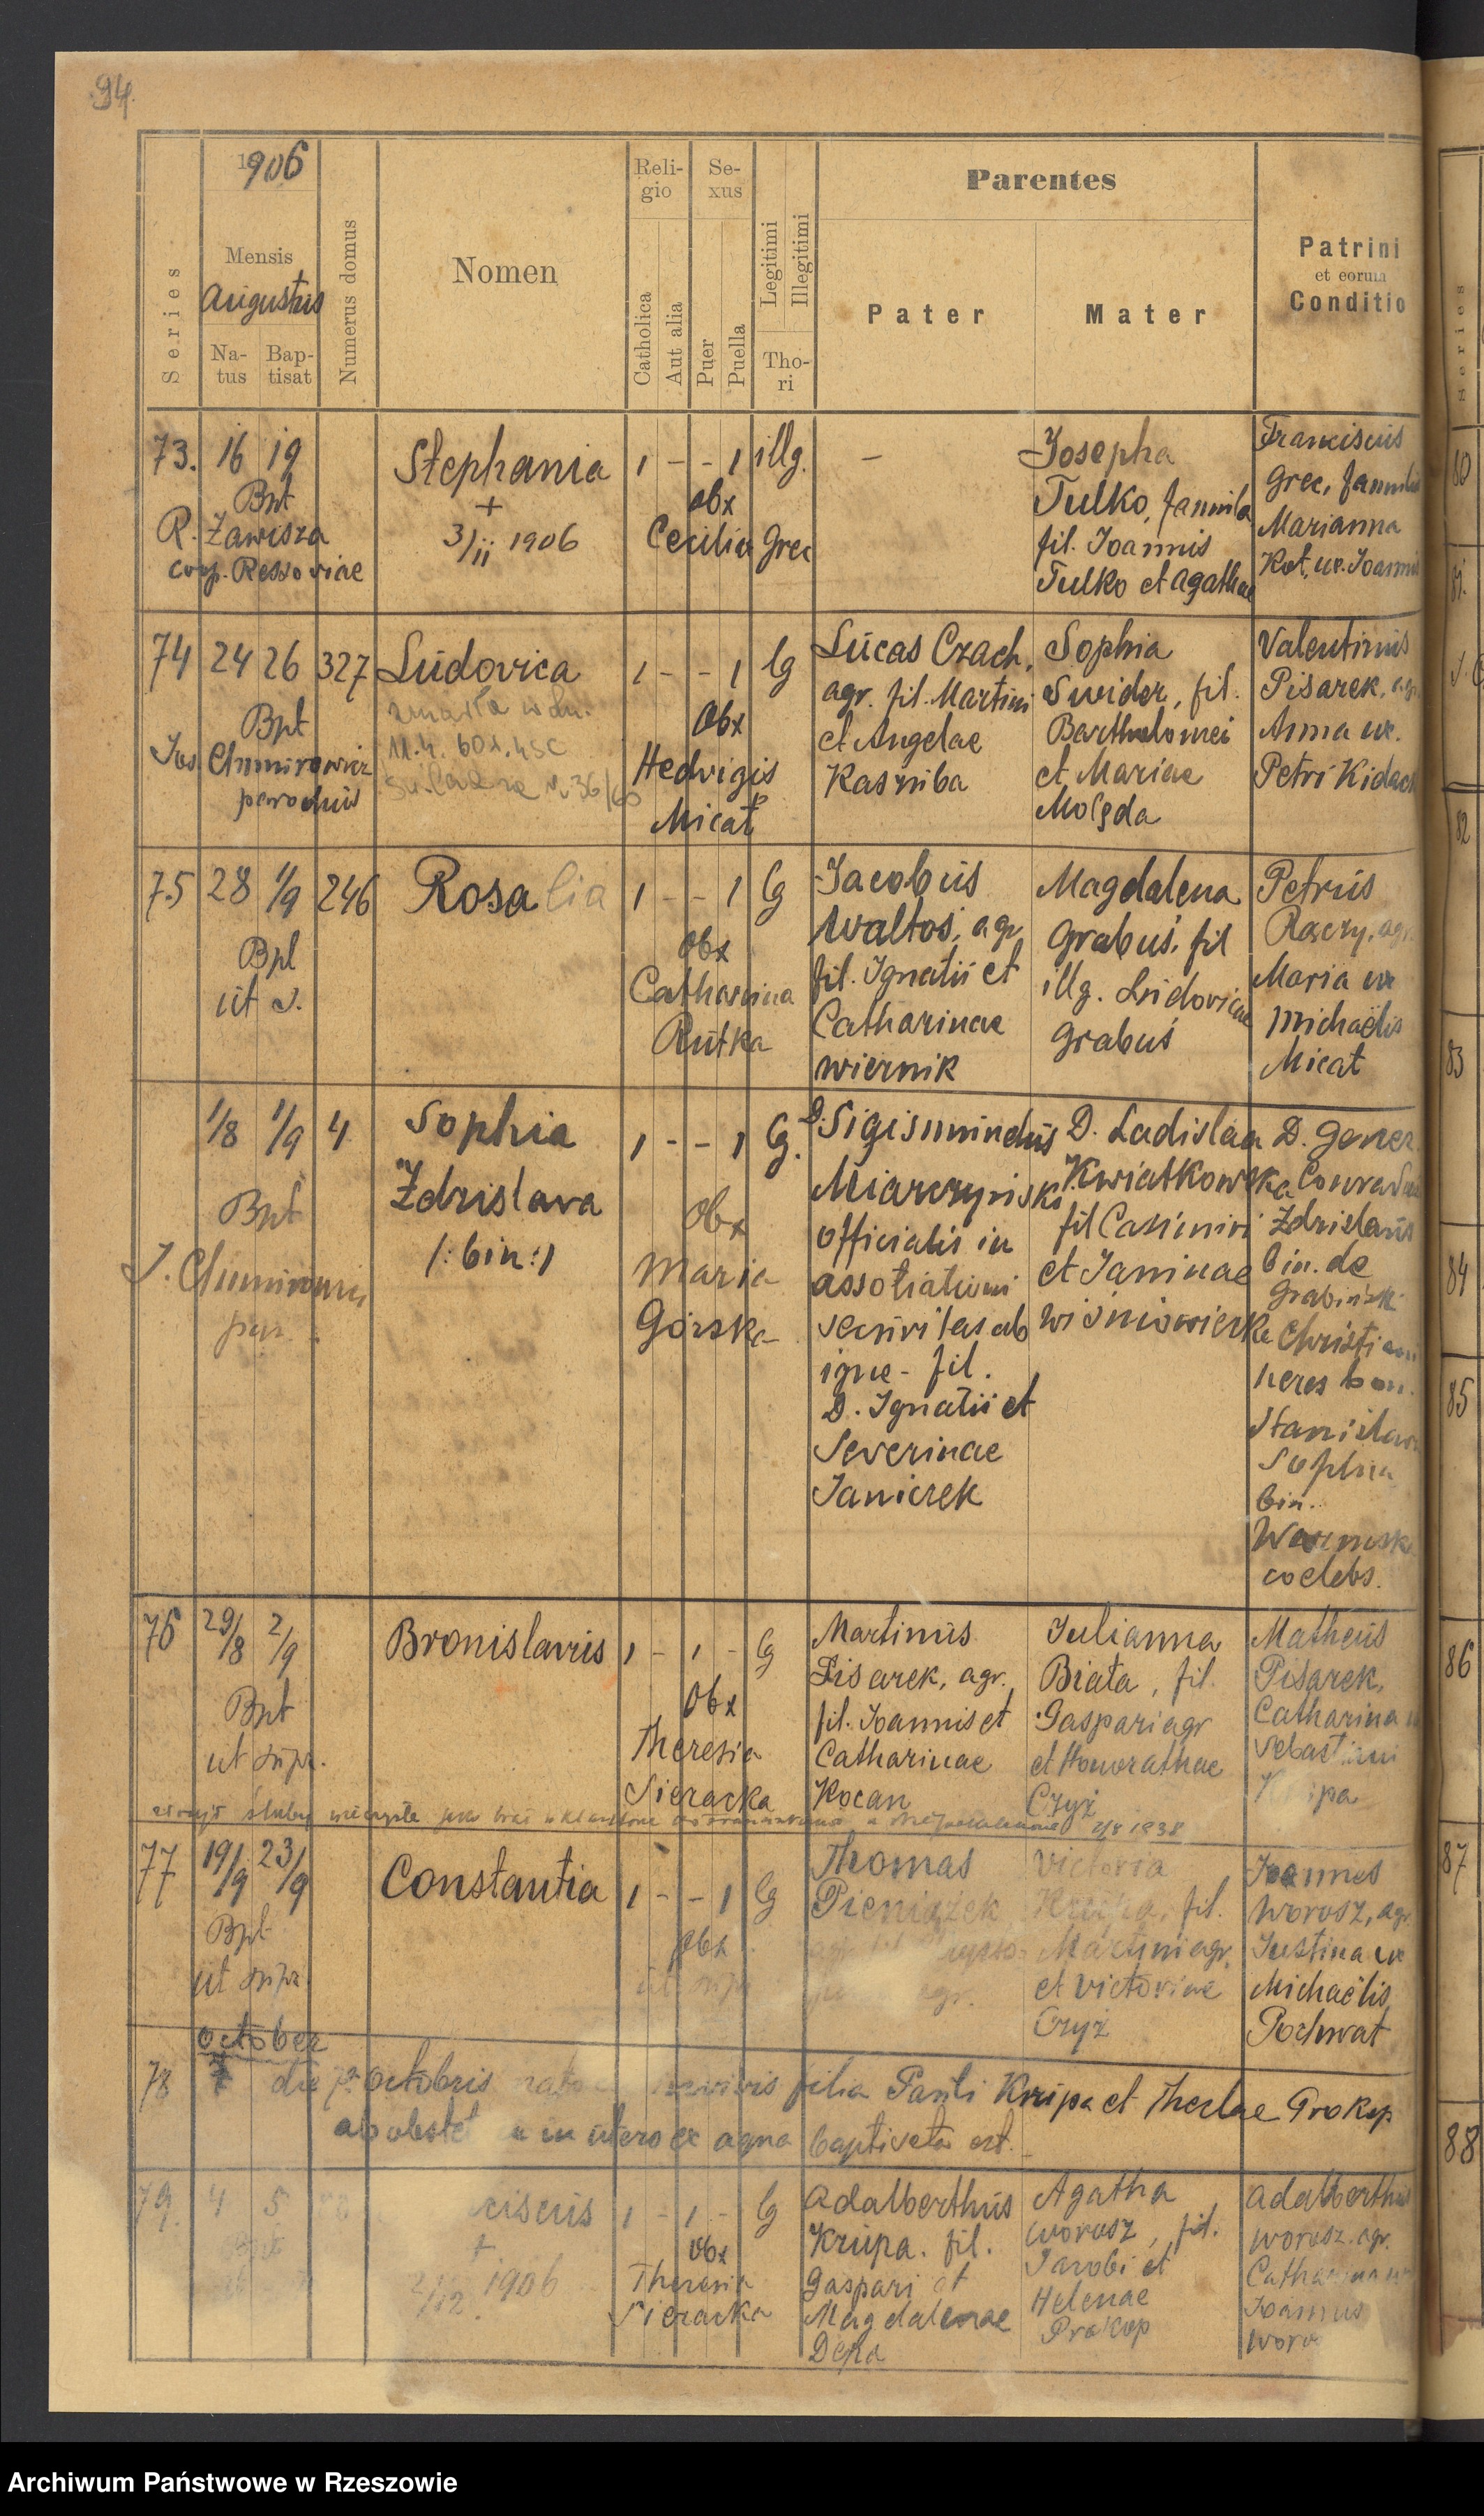 94.
1906
Mensis
Augustus
Series
Na-
tus
Bap-
tisat
Numerus domus
Nomen
Reli-
gio
Catholica
Aut alia
Se-
xus
Puer
Puella
Legitimi
Illegitimi
Tho-
ri
Parentes
Pater
Mater
Patrini
et eorum
Conditio
73. 16 19
Bpt
R. Zawisza
coop. Ressoviae
Stephania
+
3/ii 1906
1 - - 1 illg.
Obx
Cecilia Grec
-
Josepha
Tulko, famula
fil. Joannis
Tulko et Agathae
Franciscus
Grec, famulus
Marianna
Kot, ux. Joannis
74 24 26 327
Bpt
Jos. Chmurowicz
parochus
Ludovica
zmarła
11.4. 601.
36/60
1 - - 1 lg
Obx
Hedvigis
Micał
Lucas Czach,
agr. fil. Martini
et Angelae
Kaszniba
Sophia
Swider, fil.
Bartholomei
et Mariae
Molęda
Valentinus
Pisarek, agr.
Anna ux.
Petri Kidach
75 28 1/9 246
Bpt
ut s.
Rosalia
1 - - 1 lg
Obx
Catharina
Rutka
Jacobus
Waltoś, agr.
fil. Ignatii et
Catharinae
Wiernik
Magdalena
Grabuś, fil
illg. Ludovicae
Grabuś
Petrus
Raczy, agr.
Maria ux
Michaëlis
Micat
1/8 1/9 4
Bpt
J. Chmurowicz
par.
Sophia
Zdzislava
/:bin:/
1 - - 1 lg.
Obx
Maria
Górska
D. Sigismundus
Miarczyński
officialis in
assotiationi
securitas ab
igne - fil.
D. Ignatii et
Severinae
Janiczek
D. Ladislaa
Kwiatkowska
fil Casimiri
et Janinae
Wiśniowiecka
D. Gener.
Conradus
Zdzislaus
bin. de
Grabinski
Christiani
heres bon.
Stanislaw
Sophia
bin.
coelebs.
76 29/8 2/9
Bpt
ut supr.
Bronislaus
1 - 1 - lg
Obx
Theresia
Sieracka
Martinus
Pisarek, agr.
fil. Joannis et
Catharinae
Kocan
Julianna
Biała, fil.
Gaspari agr
et Honorathae
Czyż
Matheus
Pisarek,
Catharina
Sebastiani
Krupa
śluby wieczyste 2/8 1938
77 19/9 23/9
Bpt
ut supr.
Constantia
1 - - 1 lg
Obx
ut supr
Thomas
Pieniążek
agr.
Victoria
Krupa, fil.
Martini agr.
et Victoriae
Czyż
Joannes
Worosz, agr.
Justina ux
Michaëlis
Pochwat
October
78 die 7a Octobris filia Pauli Krupa et Theclae Prokop
ab obstet in utero ex aqua baptisata est.
79. 4 5
Bpt
ciscus
+
2/12. 1906
1 - 1 - lg
Obx
Theresia
Sieracka
Adalberthus
Krupa. fil.
Gaspari et
Magdalenae
Depa
Agatha
Worosz, fil.
Jacobi et
Helenae
Prokop
Adalberthus
Worosz. agr.
Catharina ux
Joannis
Woro
Series
80
81.
82
83
84
85
86
87
88
Archiwum Państwowe w Rzeszowie